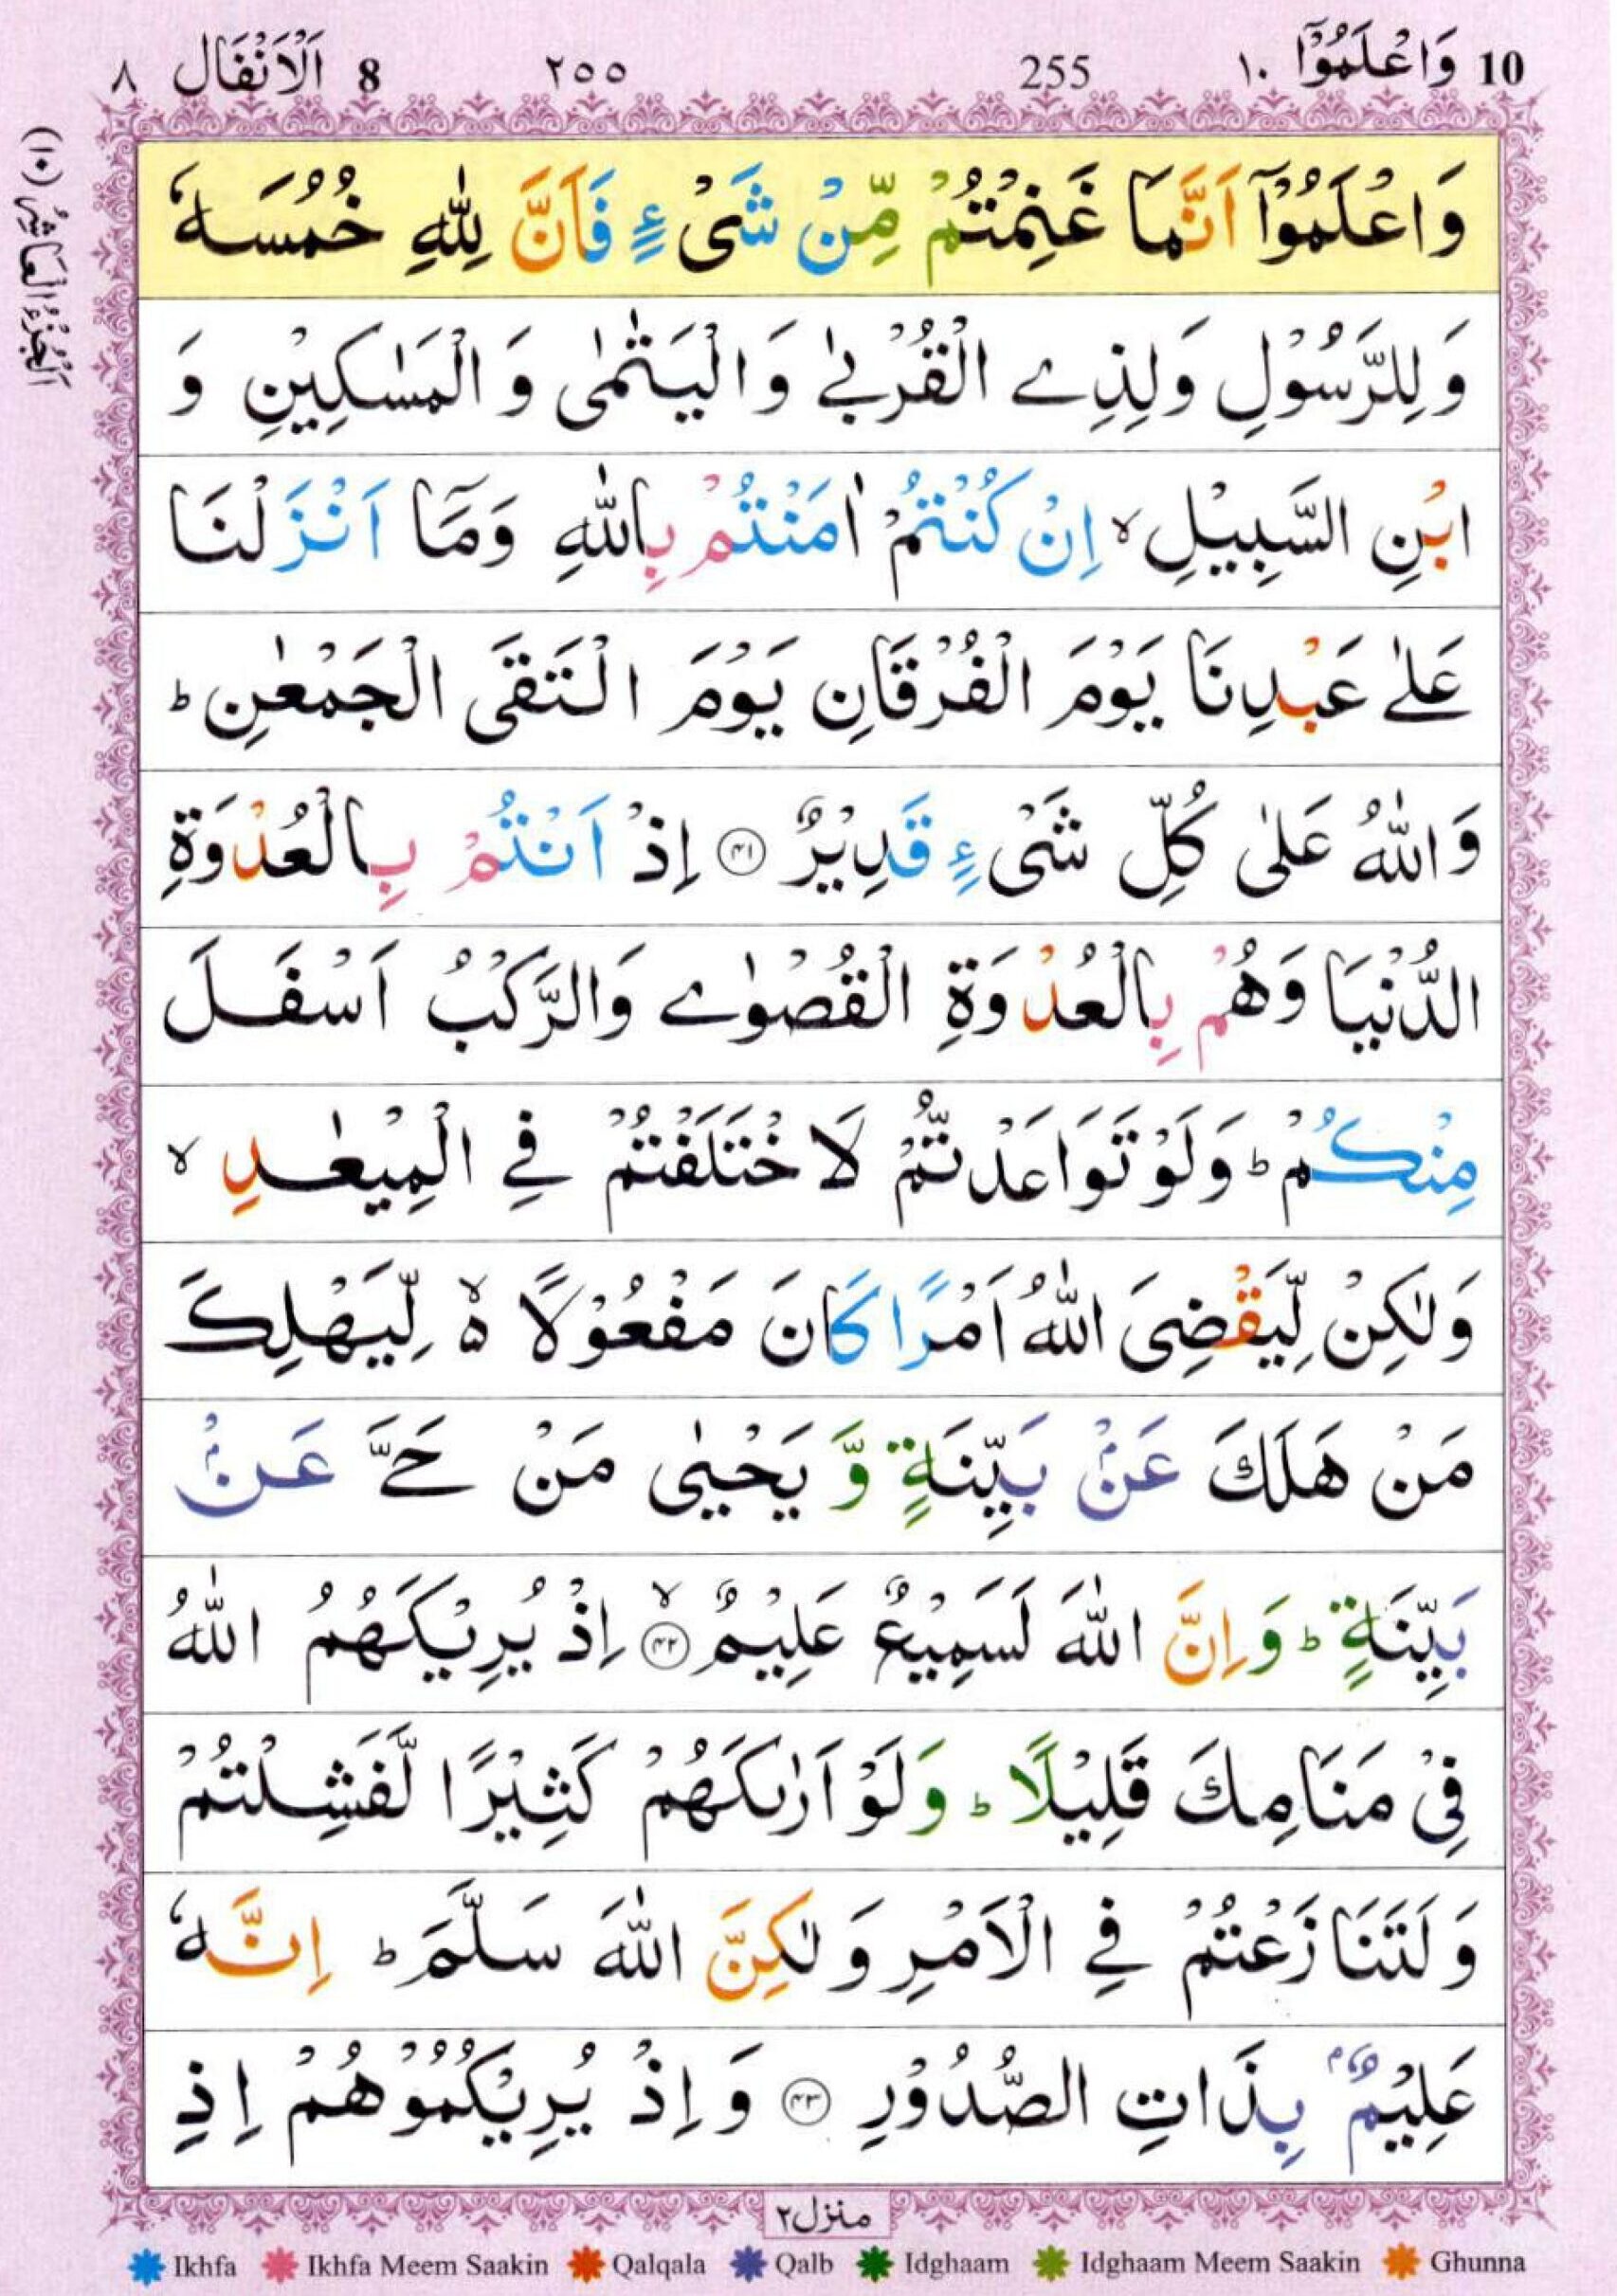 10 وَاعْلَمُوْٓا ١٠ 255 ٢٥٥ 8 اَلْاَنْفَال ٨
اَلْجُزْءُ الْعَاشِرُ (١٠)
وَاعْلَمُوْٓا اَنَّمَا غَنِمْتُمْ مِّنْ شَیْءٍ فَاَنَّ لِلّٰهِ خُمُسَهٗ
وَلِلرَّسُوْلِ وَلِذِی الْقُرْبٰی وَالْیَتٰمٰی وَ الْمَسٰكِیْنِ وَ
ابْنِ السَّبِیْلِ ۙ اِنْ كُنْتُمْ اٰمَنْتُمْ بِاللّٰهِ وَمَاۤ اَنْزَلْنَا
عَلٰی عَبْدِنَا یَوْمَ الْفُرْقَانِ یَوْمَ الْتَقَی الْجَمْعٰنِ ؕ
وَاللّٰهُ عَلٰی كُلِّ شَیْءٍ قَدِیْرٌ ﴿۴۱﴾ اِذْ اَنْتُمْ بِالْعُدْوَةِ
الدُّنْیَا وَهُمْ بِالْعُدْوَةِ الْقُصْوٰی وَالرَّكْبُ اَسْفَلَ
مِنْكُمْ ؕ وَلَوْ تَوَاعَدْتُّمْ لَاخْتَلَفْتُمْ فِی الْمِیْعٰدِ ۙ
وَلٰكِنْ لِّیَقْضِیَ اللّٰهُ اَمْرًا كَانَ مَفْعُوْلًا ۙ۬ لِّیَهْلِكَ
مَنْ هَلَكَ عَنْۢ بَیِّنَةٍ وَّ یَحْیٰی مَنْ حَیَّ عَنْۢ
بَیِّنَةٍ ؕ وَاِنَّ اللّٰهَ لَسَمِیْعٌ عَلِیْمٌ ﴿۴۲﴾ۙ اِذْ یُرِیْكَهُمُ اللّٰهُ
فِیْ مَنَامِكَ قَلِیْلًا ؕ وَلَوْ اَرٰىكَهُمْ كَثِیْرًا لَّفَشِلْتُمْ
وَلَتَنَازَعْتُمْ فِی الْاَمْرِ وَلٰكِنَّ اللّٰهَ سَلَّمَ ؕ اِنَّهٗ
عَلِیْمٌۢ بِذَاتِ الصُّدُوْرِ ﴿۴۳﴾ وَ اِذْ یُرِیْكُمُوْهُمْ اِذِ
منزل٢
Ikhfa Ikhfa Meem Saakin Qalqala Qalb Idghaam Idghaam Meem Saakin Ghunna